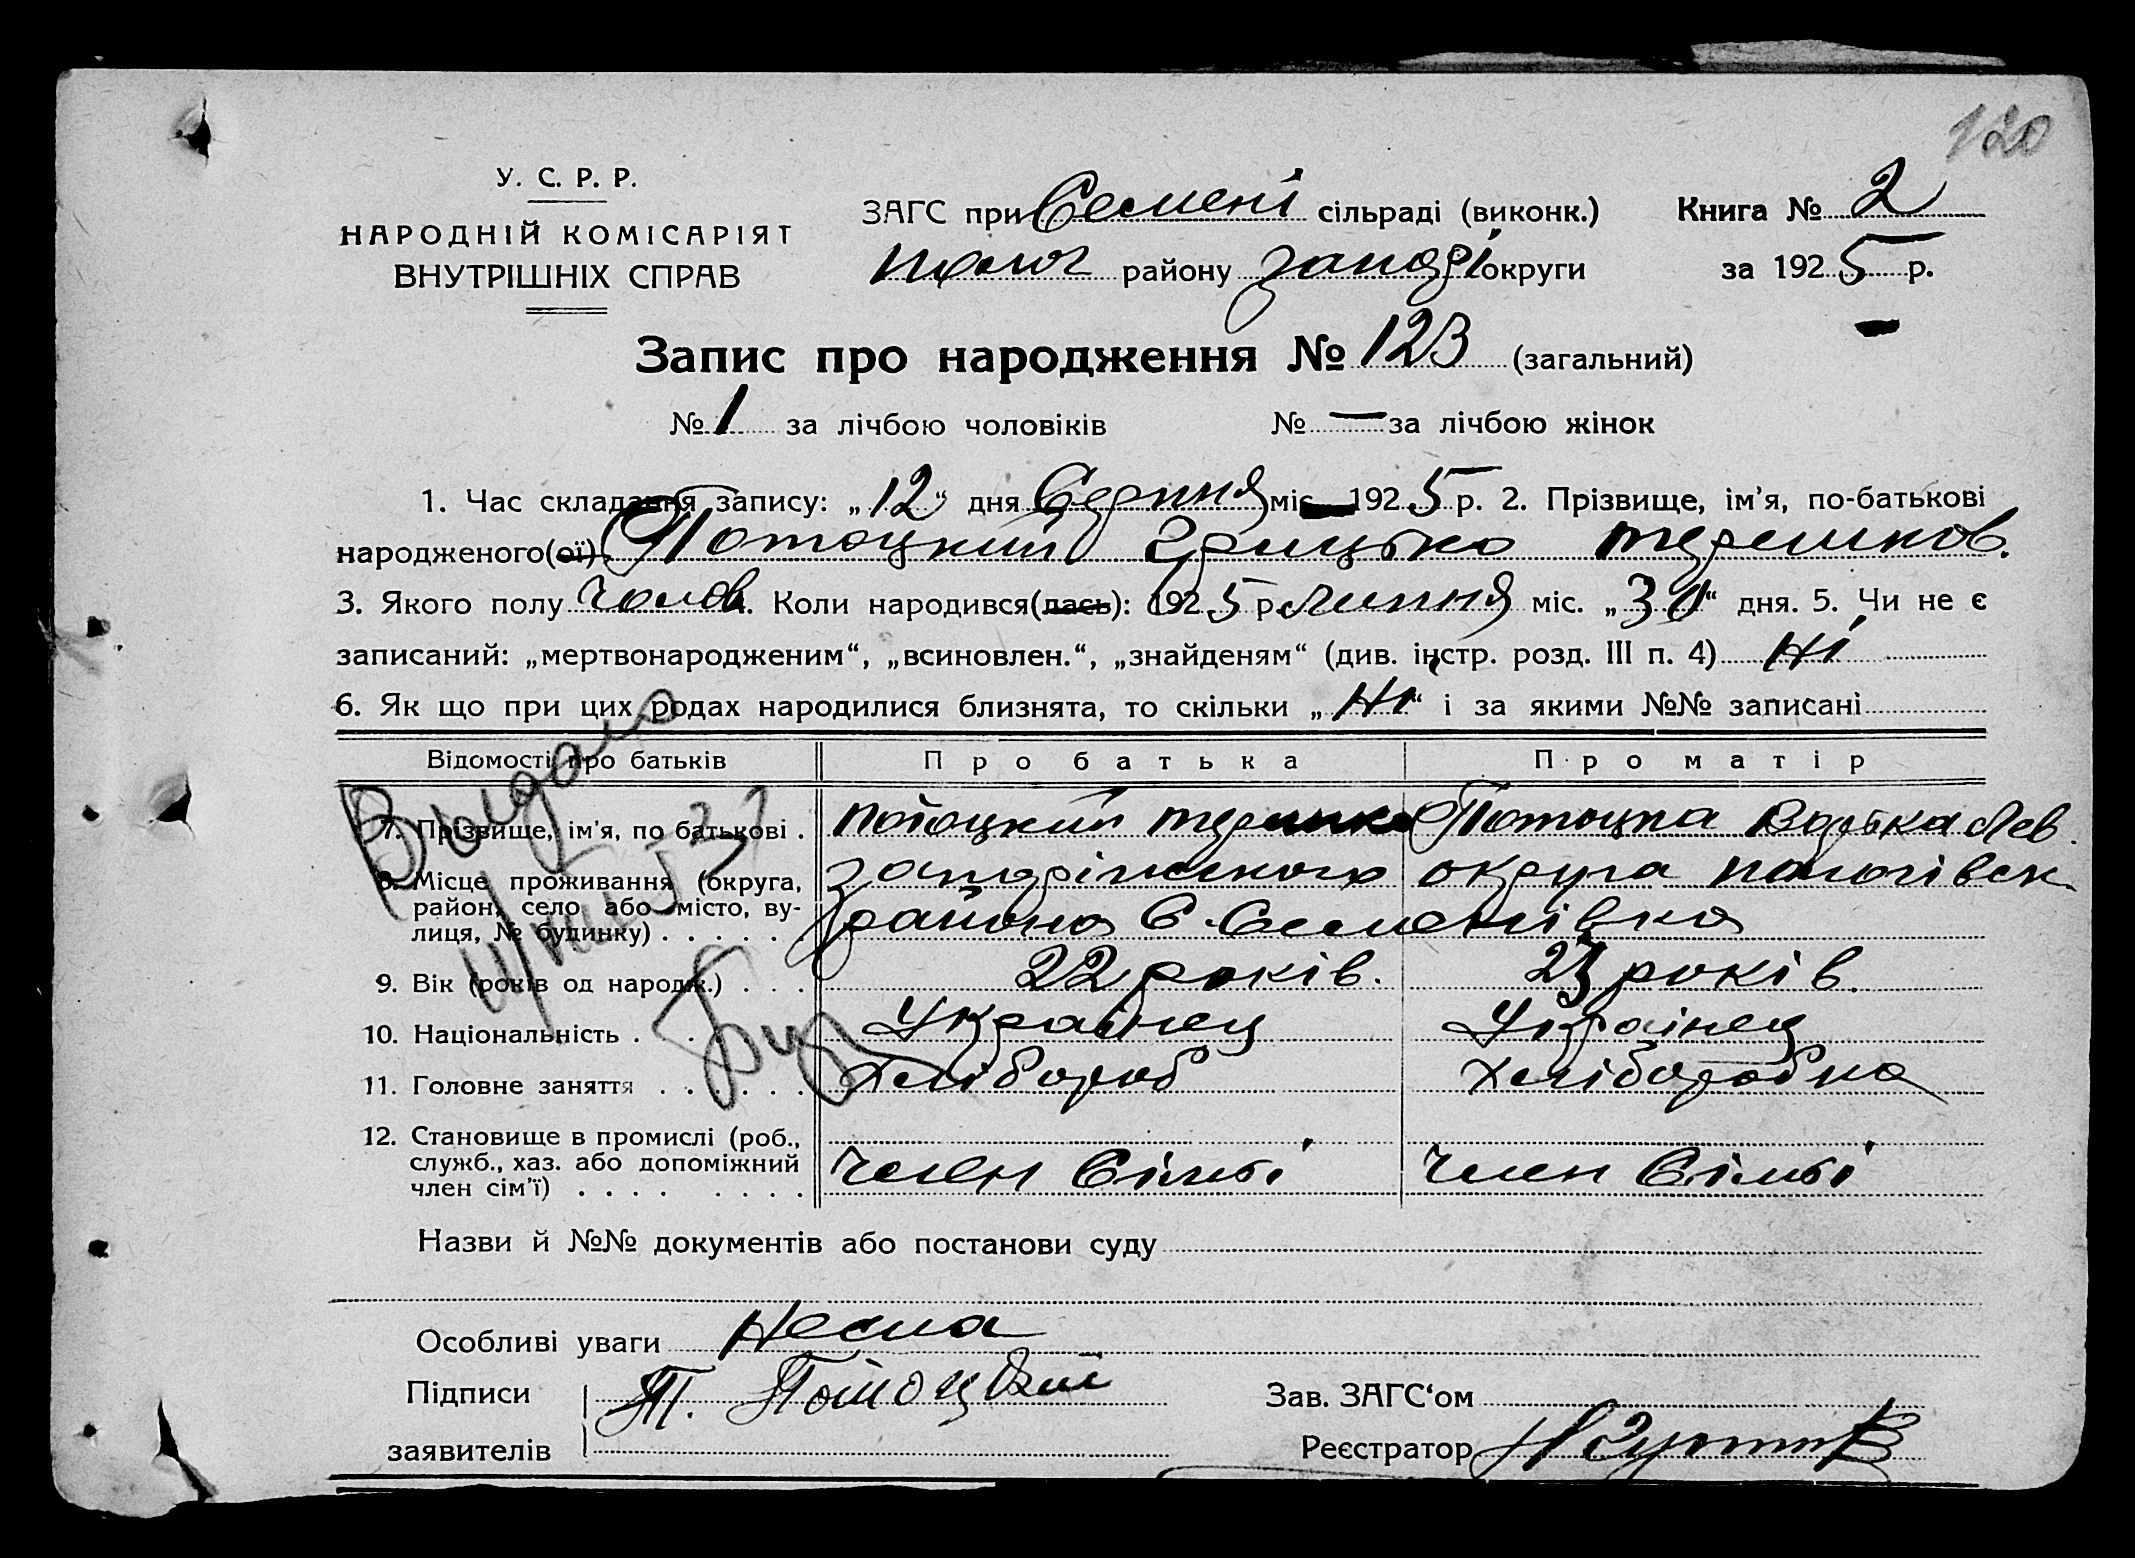 120
У. С. Р. Р.
НАРОДНІЙ КОМІСАРІЯТ
ВНУТРІШНІХ СПРАВ
ЗАГС при Семені сільраді (виконк.) Книга № 2
полог району запорі округи за 1925 р.
Запис про народження № 123 (загальний)
№ 1 за лічбою чоловіків № — за лічбою жінок
1. Час складання запису: „12“ дня Серпня міс 1925 р. 2. Прізвище, ім'я, по-батькові
народженого(ої) Потоцкий Грицько терешков.
3. Якого полу Чолов. Коли народився(лась): 1925 р. Липня міс. „30“ дня. 5. Чи не є
записаний: „мертвонародженим“, „всиновлен.“, „знайденям“ (див. інстр. розд. III п. 4) Ні
6. Як що при цих родах народилися близнята, то скільки „Ні“ і за якими №№ записані
Відомості про батьків Про батька Про матір
7. Прізвище, ім'я, по батькові . Потоцкий Потоцка Лев.
8. Місце проживання (округа, запоріжского округа пологівск.
район, село або місто, ву-
лиця, № будинку) . . . . . . района С. Семенівка
9. Вік (років од народж.) . . . 22 років. 23 років.
10. Національність . Українец Українец
11. Головне заняття . . . . . . Хлібороб Хлiборобка
12. Становище в промислі (роб.,
служб., хаз. або допоміжний
член сім'ї) . . . . . . . . член Сімьі член Сімьі
Видано
Назви й №№ документів або постанови суду
Особливі уваги Нема
Підписи Т. Потоцкий Зав. ЗАГС‘ом
заявителів Реєстратор